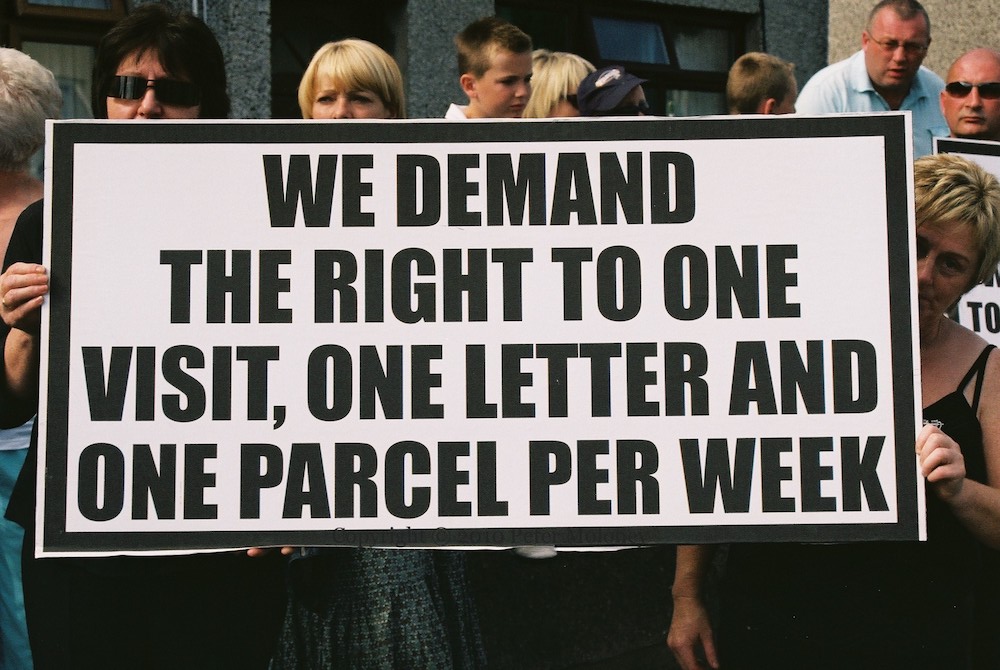 WE DEMAND
THE RIGHT TO ONE
VISIT, ONE LETTER AND
ONE PARCEL PER WEEK
TO
Copyright © 2010